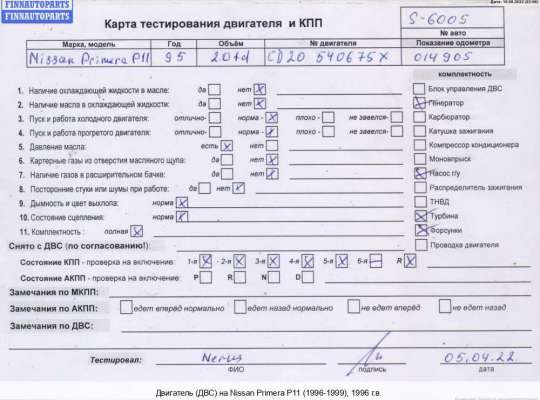 FINNAUTOPARTS
FINNAUTOPARTS
Карта тестирования двигателя и КПП
S-6005
№ авто
Марка, модель Год Объём № двигателя Показание одометра
Nissan Primera P11 95 2.0td CD20 540675X 014905
комплектность
1. Наличие охлаждающей жидкости в масле: да нет X
2. Наличие масла в охлаждающей жидкости: да нет X
3. Пуск и работа холодного двигателя: отлично- норма - X плохо - не завелся-
4. Пуск и работа прогретого двигателя: отлично- норма - X плохо - не завелся-
5. Давление масла: есть X нет
6. Картерные газы из отверстия масляного щупа: да нет X
7. Наличие газов в расширительном бачке: да нет X
8. Посторонние стуки или шумы при работе: да нет X
9. Дымность и цвет выхлопа: норма X
10. Состояние сцепления: норма X
11. Комплектность : полная X
Блок управления ДВС
X Генератор
Карбюратор
Катушка зажигания
Компрессор кондиционера
Моновпрыск
X Насос г/у
Распределитель зажигания
ТНВД
X Турбина
X Форсунки
Проводка двигателя
Снято с ДВС (по согласованию!):
Состояние КПП - проверка на включение: 1-я X 2-я X 3-я X 4-я X 5-я X 6-я R X
Состояние АКПП - проверка на включение: P R N D
Замечания по МКПП:
Замечания по АКПП: едет вперёд нормально едет назад нормально не едет вперёд не едет назад
Замечания по ДВС:
Тестировал: 05.04.22
ФИО подпись дата
Двигатель (ДВС) на Nissan Primera P11 (1996-1999), 1996 г.в.